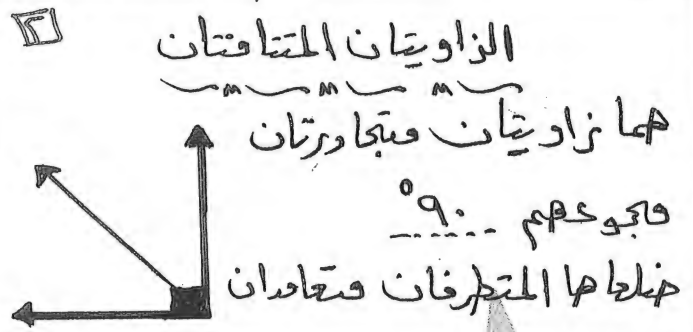 ٢
الزاويتان المتتامتان
هما زاويتان متجاورتان
مجموعهم ٩٠°
ضلعاها المتطرفان متعامدان